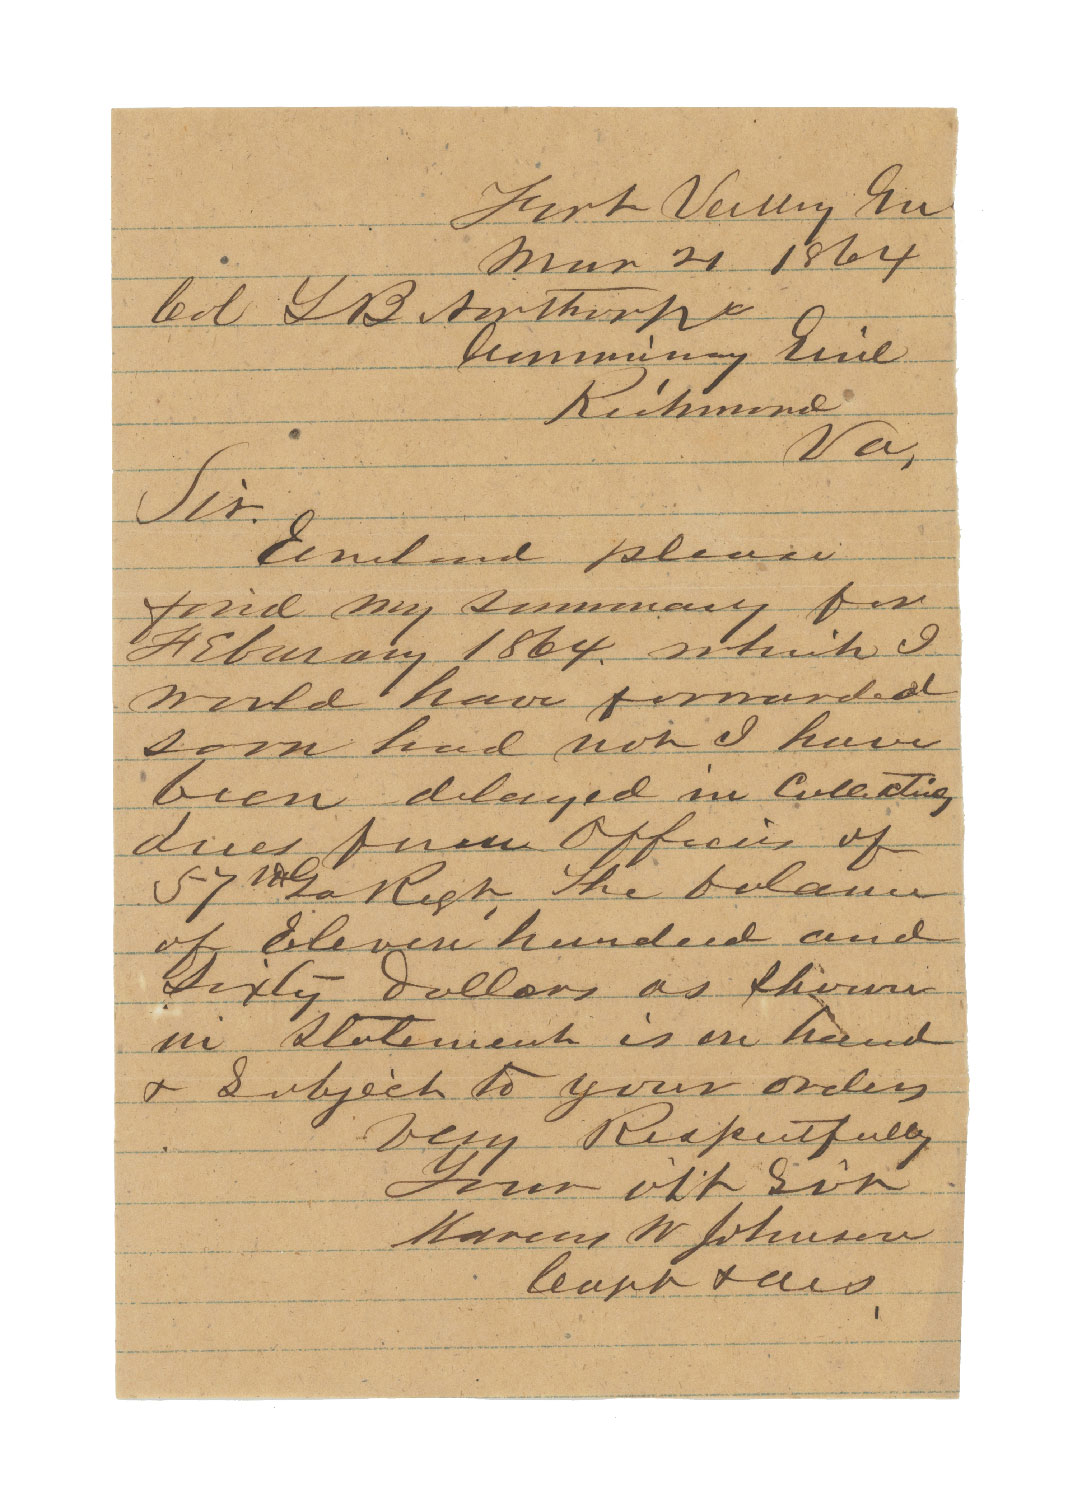 Fort Valley Ga
Mar 21 1864
Col L B Northrop
Commissary Genl
Richmond
Va,
Sir.
Enclosed please
find my summary for
FEbuary 1864. which I
would have forwarded
soon had not I have
been delayed in Collecting
dues from Officers of
57th Ga Regt, The balance
of Eleven hundred and
Sixty Dollars as shown
in Statement is on hand
& Subject to your orders
Very Respectfully
Your obt Svt
Marcus W Johnson
Capt & ACS,